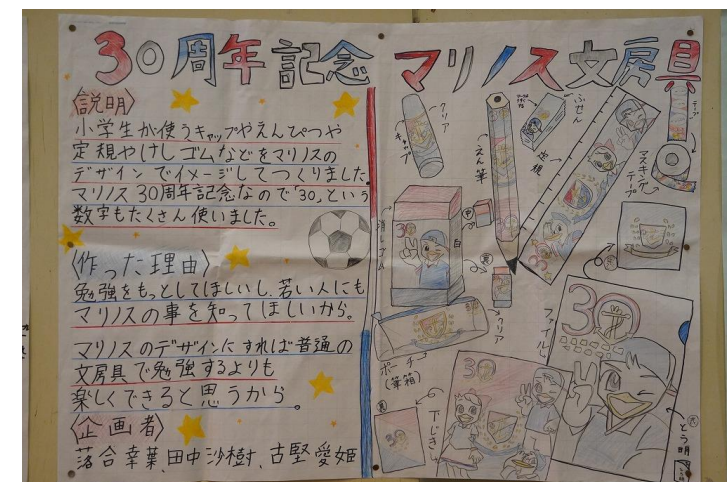 30周年記念 マリノス文房具
〈説明〉
小学生が使うキャップやえんぴつや
定規やけしゴムなどをマリノスの
デザインでイメージしてつくりました。
マリノス30周年記念なので「30」という
数字もたくさん使いました。
〈作った理由〉
勉強をもっとしてほしいし、若い人にも
マリノスの事を知ってほしいから。
マリノスのデザインにすれば普通の
文房具で勉強するよりも
楽しくできると思うから。
〈企画者〉
落合幸葉、田中沙樹、古堅愛姫
クリア
キャップ
えん筆
ふせん
定規
テープ
マスキング
テープ
消しゴム
白
30
クリア
ポーチ
(筆箱)
ファイル
30
とう明
下じき
30
30